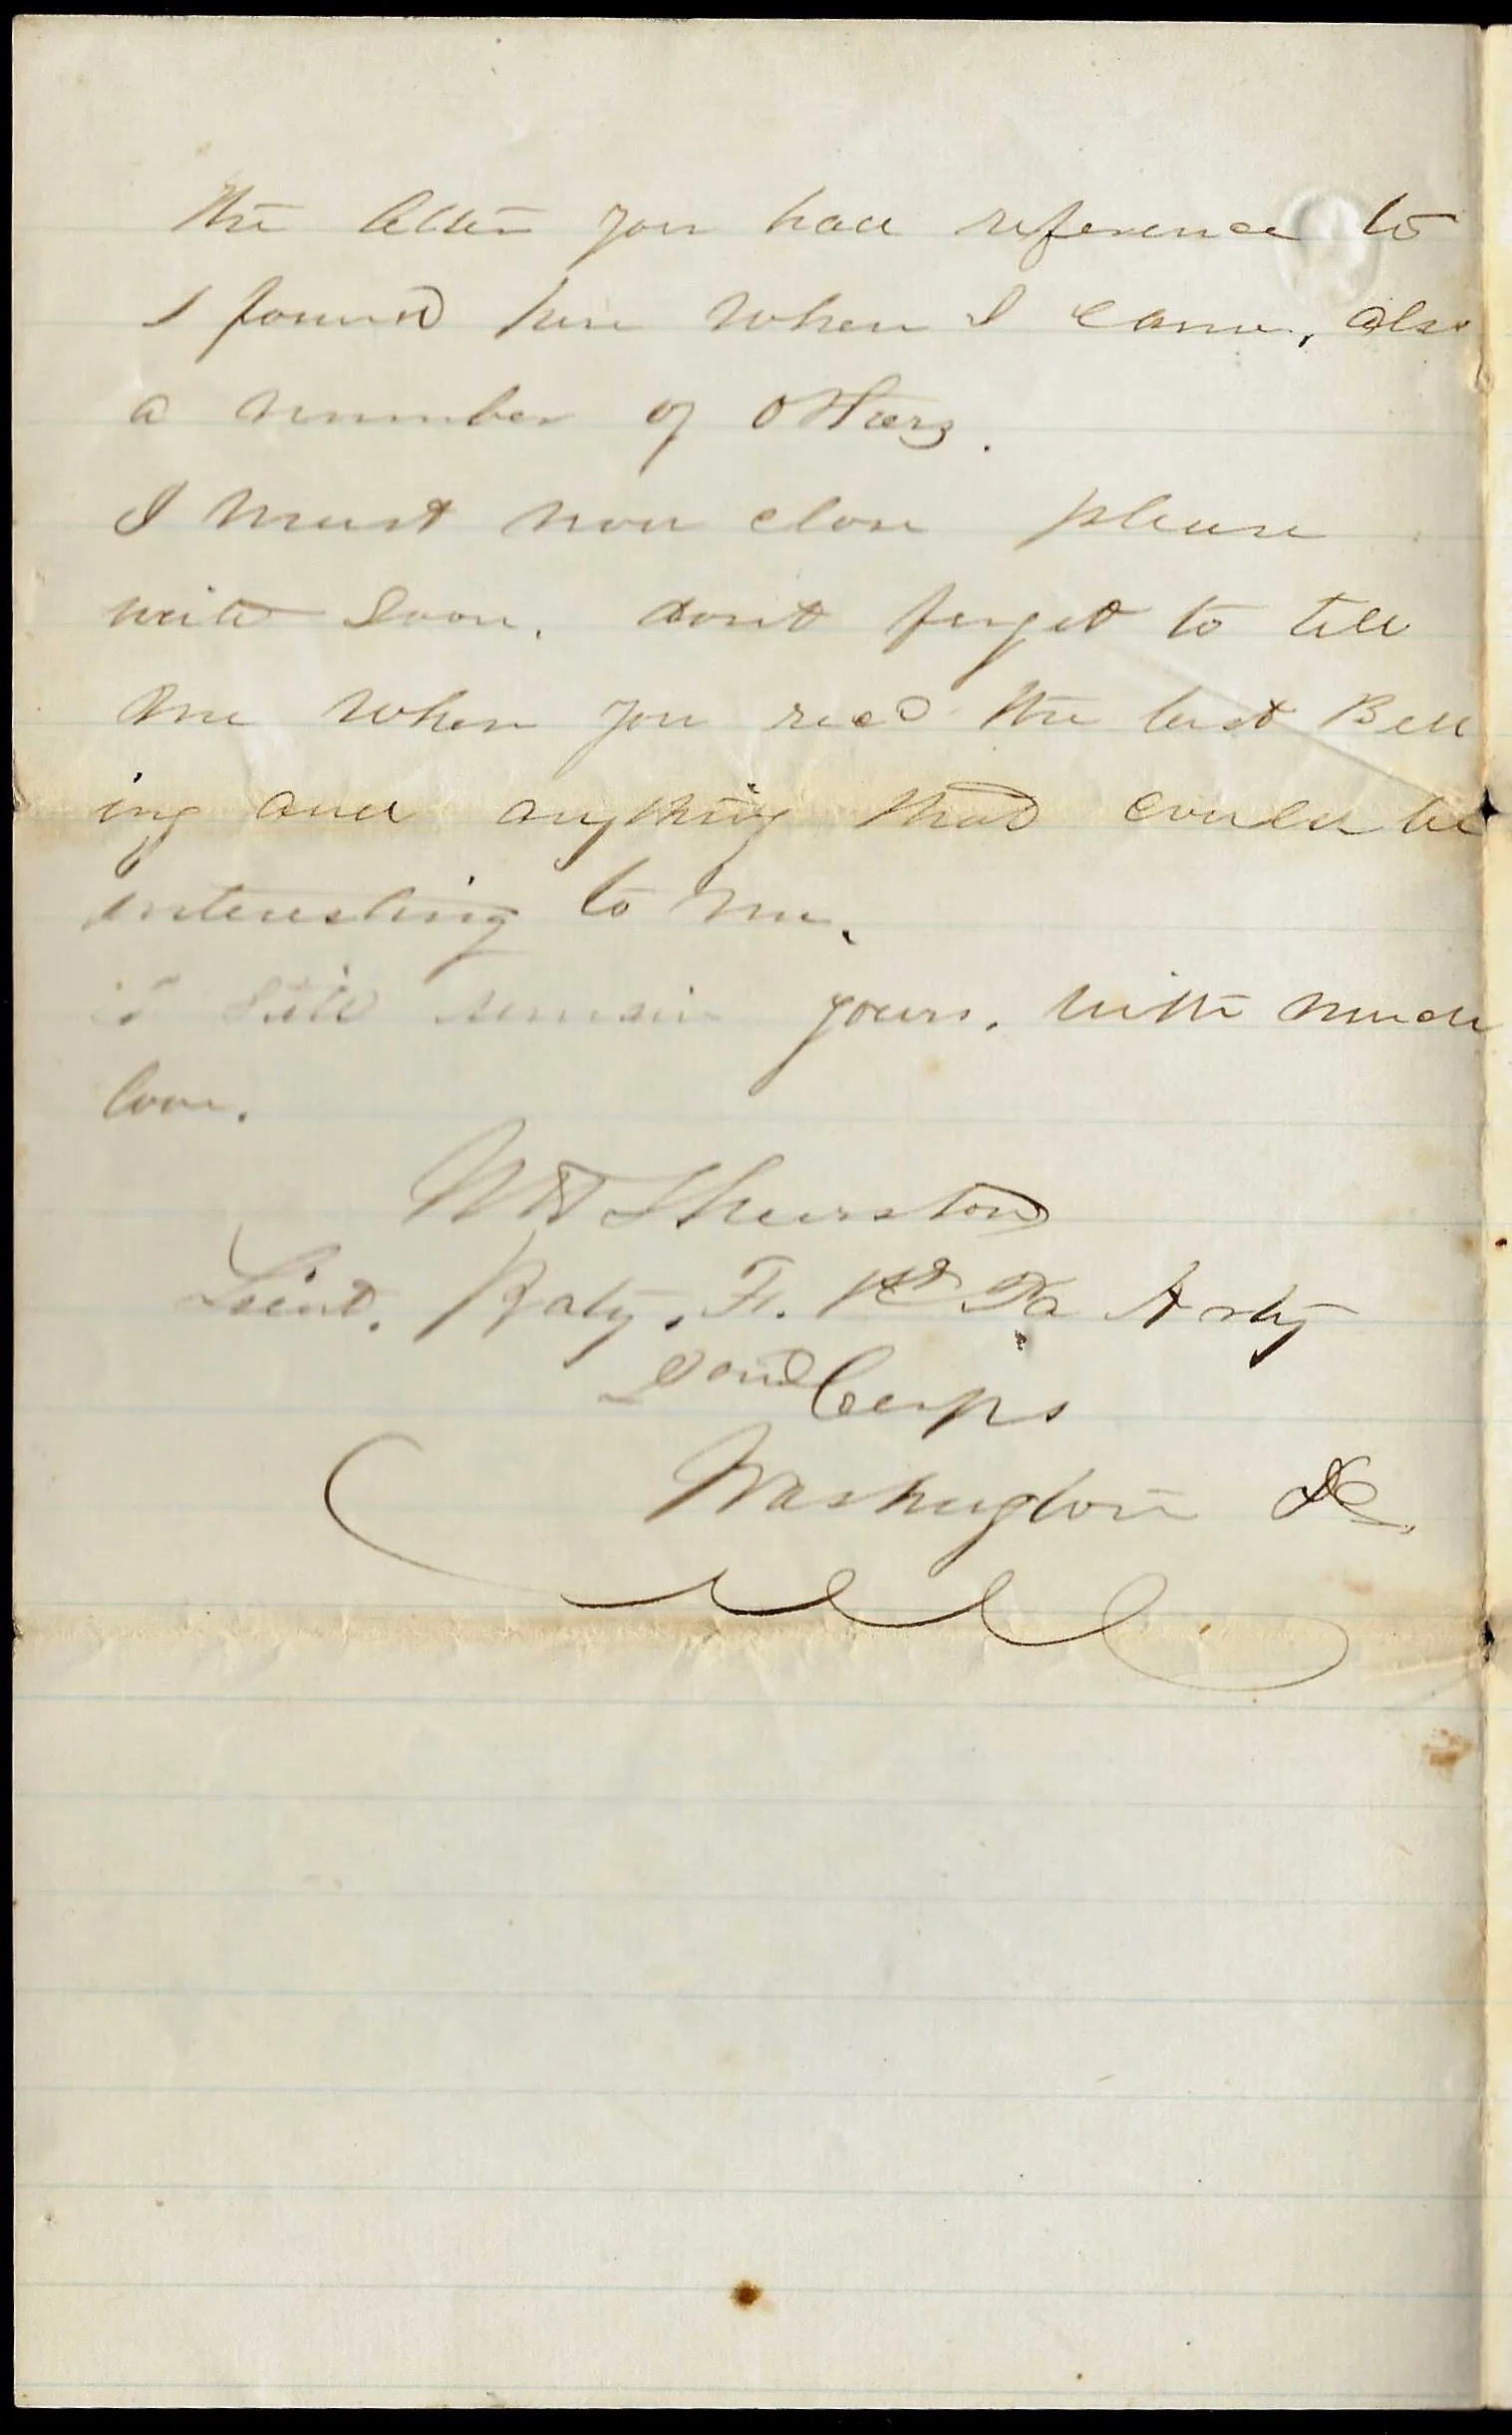 the letter you had reference to
I found here when I came, also
a number of others.
I must now close please
write soon. dont forget to tell
me when you recd the last
ing and anything that could be
interesting to me.
I still remain yours, with much
love.
Thurston
Lieut. Baty. F. 1st Pa Arty
2ond Corps
Washington DC.